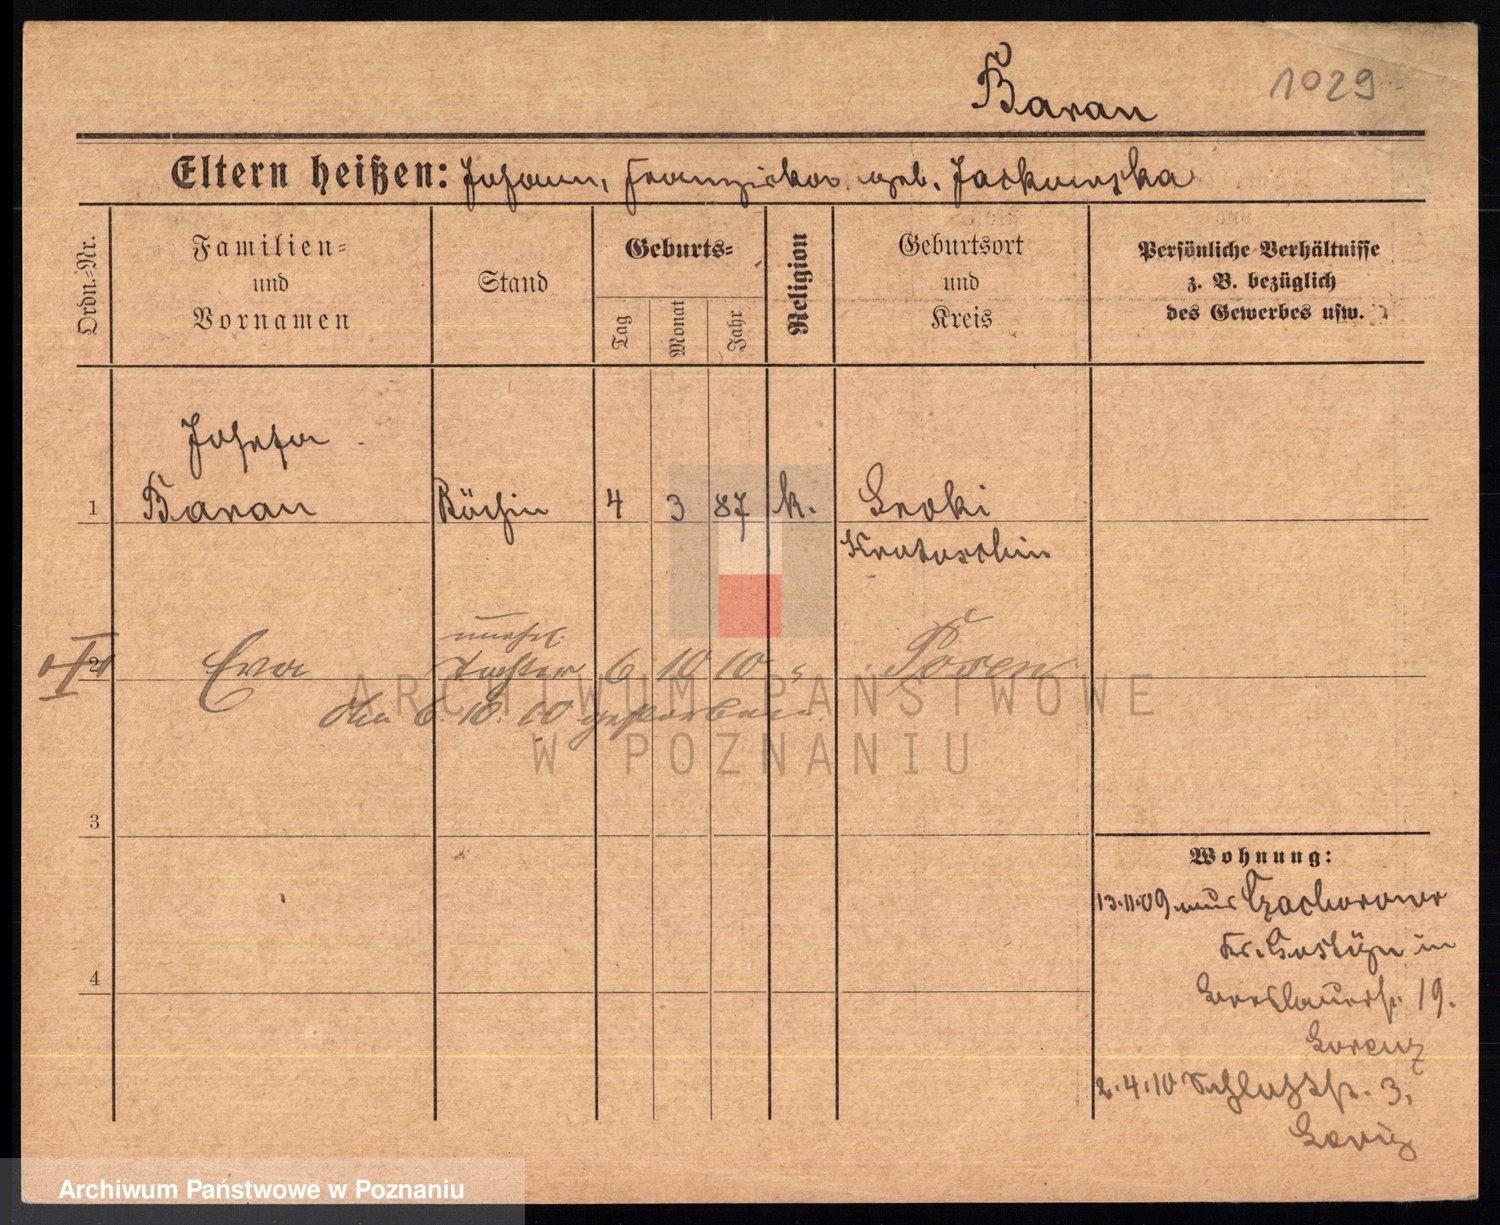 Baran
1029
Eltern heißen: Johann, Franziska geb. Jackowska
Ordn.-Nr.
Familien-
und
Vornamen
Stand
Geburts-
Tag
Monat
Jahr
Religion
Geburtsort
und
Kreis
Persönliche Verhältnisse
z. B. bezüglich
des Gewerbes usw.
Josefa
1 Baran Köchin 4 3 87 k.
Krotoschin
unehel.
2 Eva Tochter 6 10 10 Posen
den 6. 10. 10 gestorben.
3
4
Wohnung:
13.11.09 aus
Kr. Gostyn in
Breslauerstr. 19.
Lorenz
2.4.10 Schloßstr. 3,
ARCHIWUM PAŃSTWOWE
W POZNANIU
Archiwum Państwowe w Poznaniu